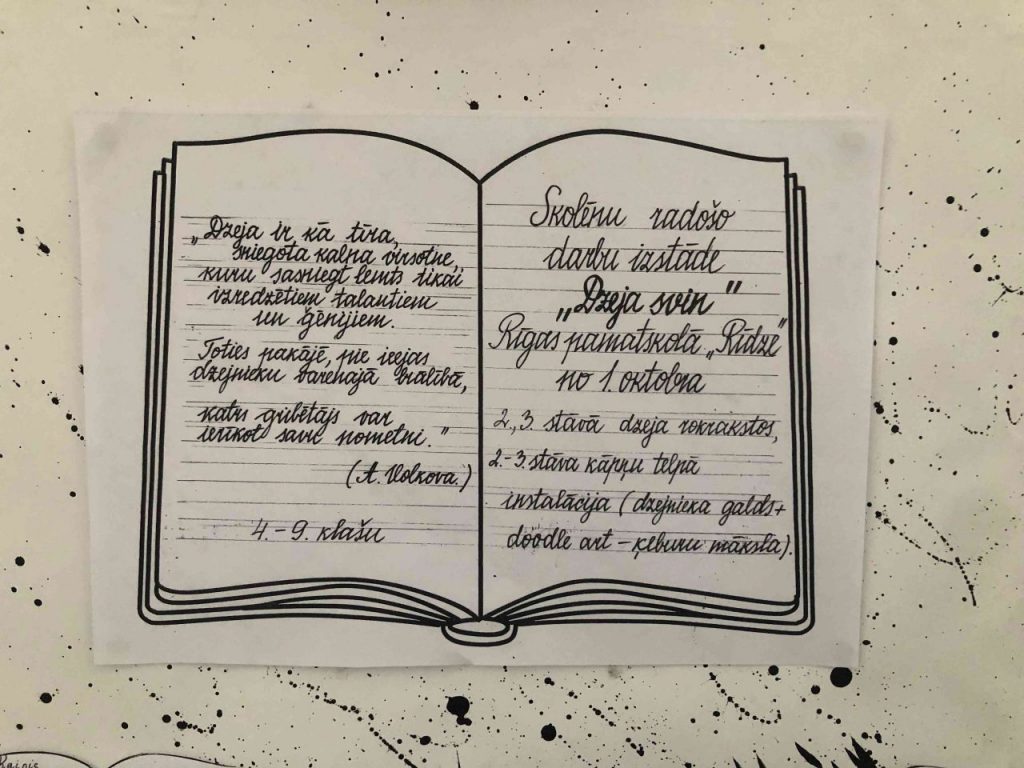 „Dzeja ir kā tīra,
sniegota kalna virsotne,
kuru sasniegt lemts tikai
izredzētiem talantiem
un ģēnijiem.
Toties pakājē, pie ieejas
dzejnieku varenajā brālībā,
katrs gribētājs var
ierīkot savu nometni."
(A. Volkova.)
4. - 9. klašu
Skolēnu radošo
darbu izstāde
„Dzeja svin"
Rīgas pamatskolā „Rīdze"
no 1. oktobra
2., 3. stāvā dzeja rokrakstos,
2.-3. stāva kāpņu telpā
instalācija (dzejnieka galds+
doodle art - ķeburu māksla).
Rainis